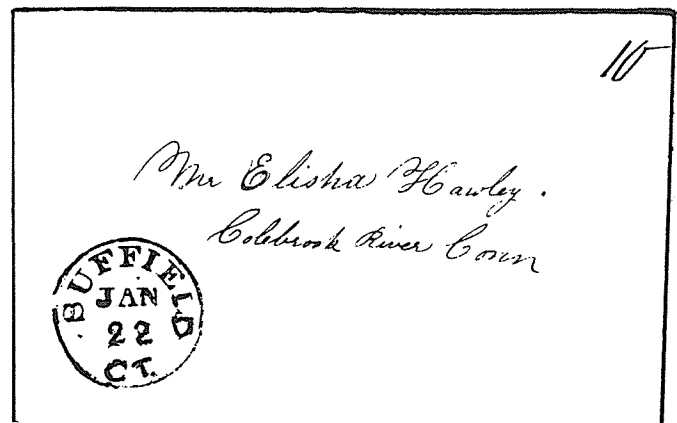 10
Mr Elisha Hawley.
Colebrook River Conn
SUFFIELD
JAN
22
CT.